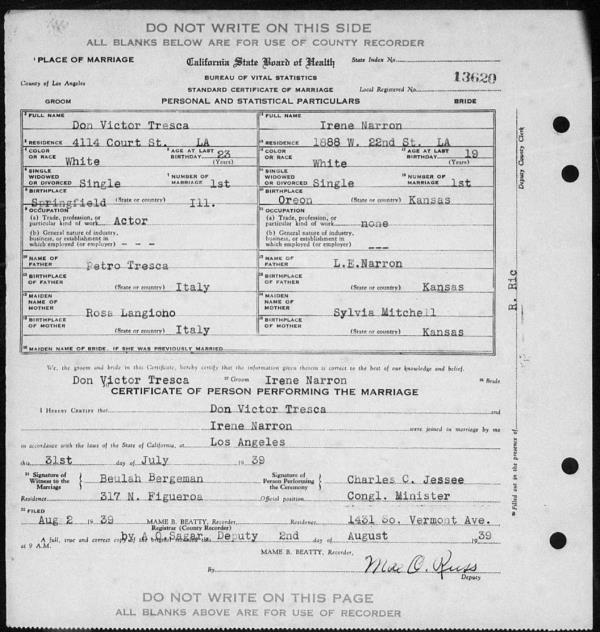 DO NOT WRITE ON THIS SIDE
ALL BLANKS BELOW ARE FOR USE OF COUNTY RECORDER
1 PLACE OF MARRIAGE California State Board of Health State Index No.
BUREAU OF VITAL STATISTICS 13620
County of Los Angeles STANDARD CERTIFICATE OF MARRIAGE Local Registered No.
GROOM PERSONAL AND STATISTICAL PARTICULARS BRIDE
FULL NAME Don Victor Tresca FULL NAME Irene Narron
RESIDENCE 4114 Court St. LA RESIDENCE 1888 W. 22nd St. LA
COLOR OR RACE White AGE AT LAST BIRTHDAY 23 (Years) COLOR OR RACE White AGE AT LAST BIRTHDAY 19 (Years)
SINGLE WIDOWED OR DIVORCED Single NUMBER OF MARRIAGE 1st SINGLE WIDOWED OR DIVORCED Single NUMBER OF MARRIAGE 1st
BIRTHPLACE (State or country) Springfield Ill. BIRTHPLACE (State or country) Oreon Kansas
OCCUPATION OCCUPATION
(a) Trade, profession, or particular kind of work Actor (a) Trade, profession, or particular kind of work none
(b) General nature of industry, business, or establishment in which employed (or employer) - - - (b) General nature of industry, business, or establishment in which employed (or employer) ---
NAME OF FATHER Petro Tresca NAME OF FATHER L.E.Narron
BIRTHPLACE OF FATHER (State or country) Italy BIRTHPLACE OF FATHER (State or country) Kansas
MAIDEN NAME OF MOTHER Rosa Langioho MAIDEN NAME OF MOTHER Sylvia Mitchell
BIRTHPLACE OF MOTHER (State or country) Italy BIRTHPLACE OF MOTHER (State or country) Kansas
MAIDEN NAME OF BRIDE, IF SHE WAS PREVIOUSLY MARRIED
We, the groom and bride in this Certificate, hereby certify that the information given therein is correct to the best of our knowledge and belief.
Don Victor Tresca Groom Irene Narron Bride
CERTIFICATE OF PERSON PERFORMING THE MARRIAGE
I HEREBY CERTIFY that Don Victor Tresca and
Irene Narron were joined in marriage by me
in accordance with the laws of the State of California, at Los Angeles
this 31st day of July 1939
Signature of Witness to the Marriage Beulah Bergeman Signature of Person Performing the Ceremony Charles C. Jessee
Residence 317 N. Figueroa Official position Congl. Minister
FILED
Aug 2 1939 MAME B. BEATTY, Recorder, Residence, 1431 So. Vermont Ave.
Registrar (County Recorder)
A full, true and correct copy by A.O.Sagar, Deputy 2nd day of August 1939
at 9 A.M. MAME B. BEATTY, Recorder,
By Mae O. Russ
Deputy
DO NOT WRITE ON THIS PAGE
ALL BLANKS ABOVE ARE FOR USE OF RECORDER
Deputy County Clerk
R. Ric
Filled out in the presence of